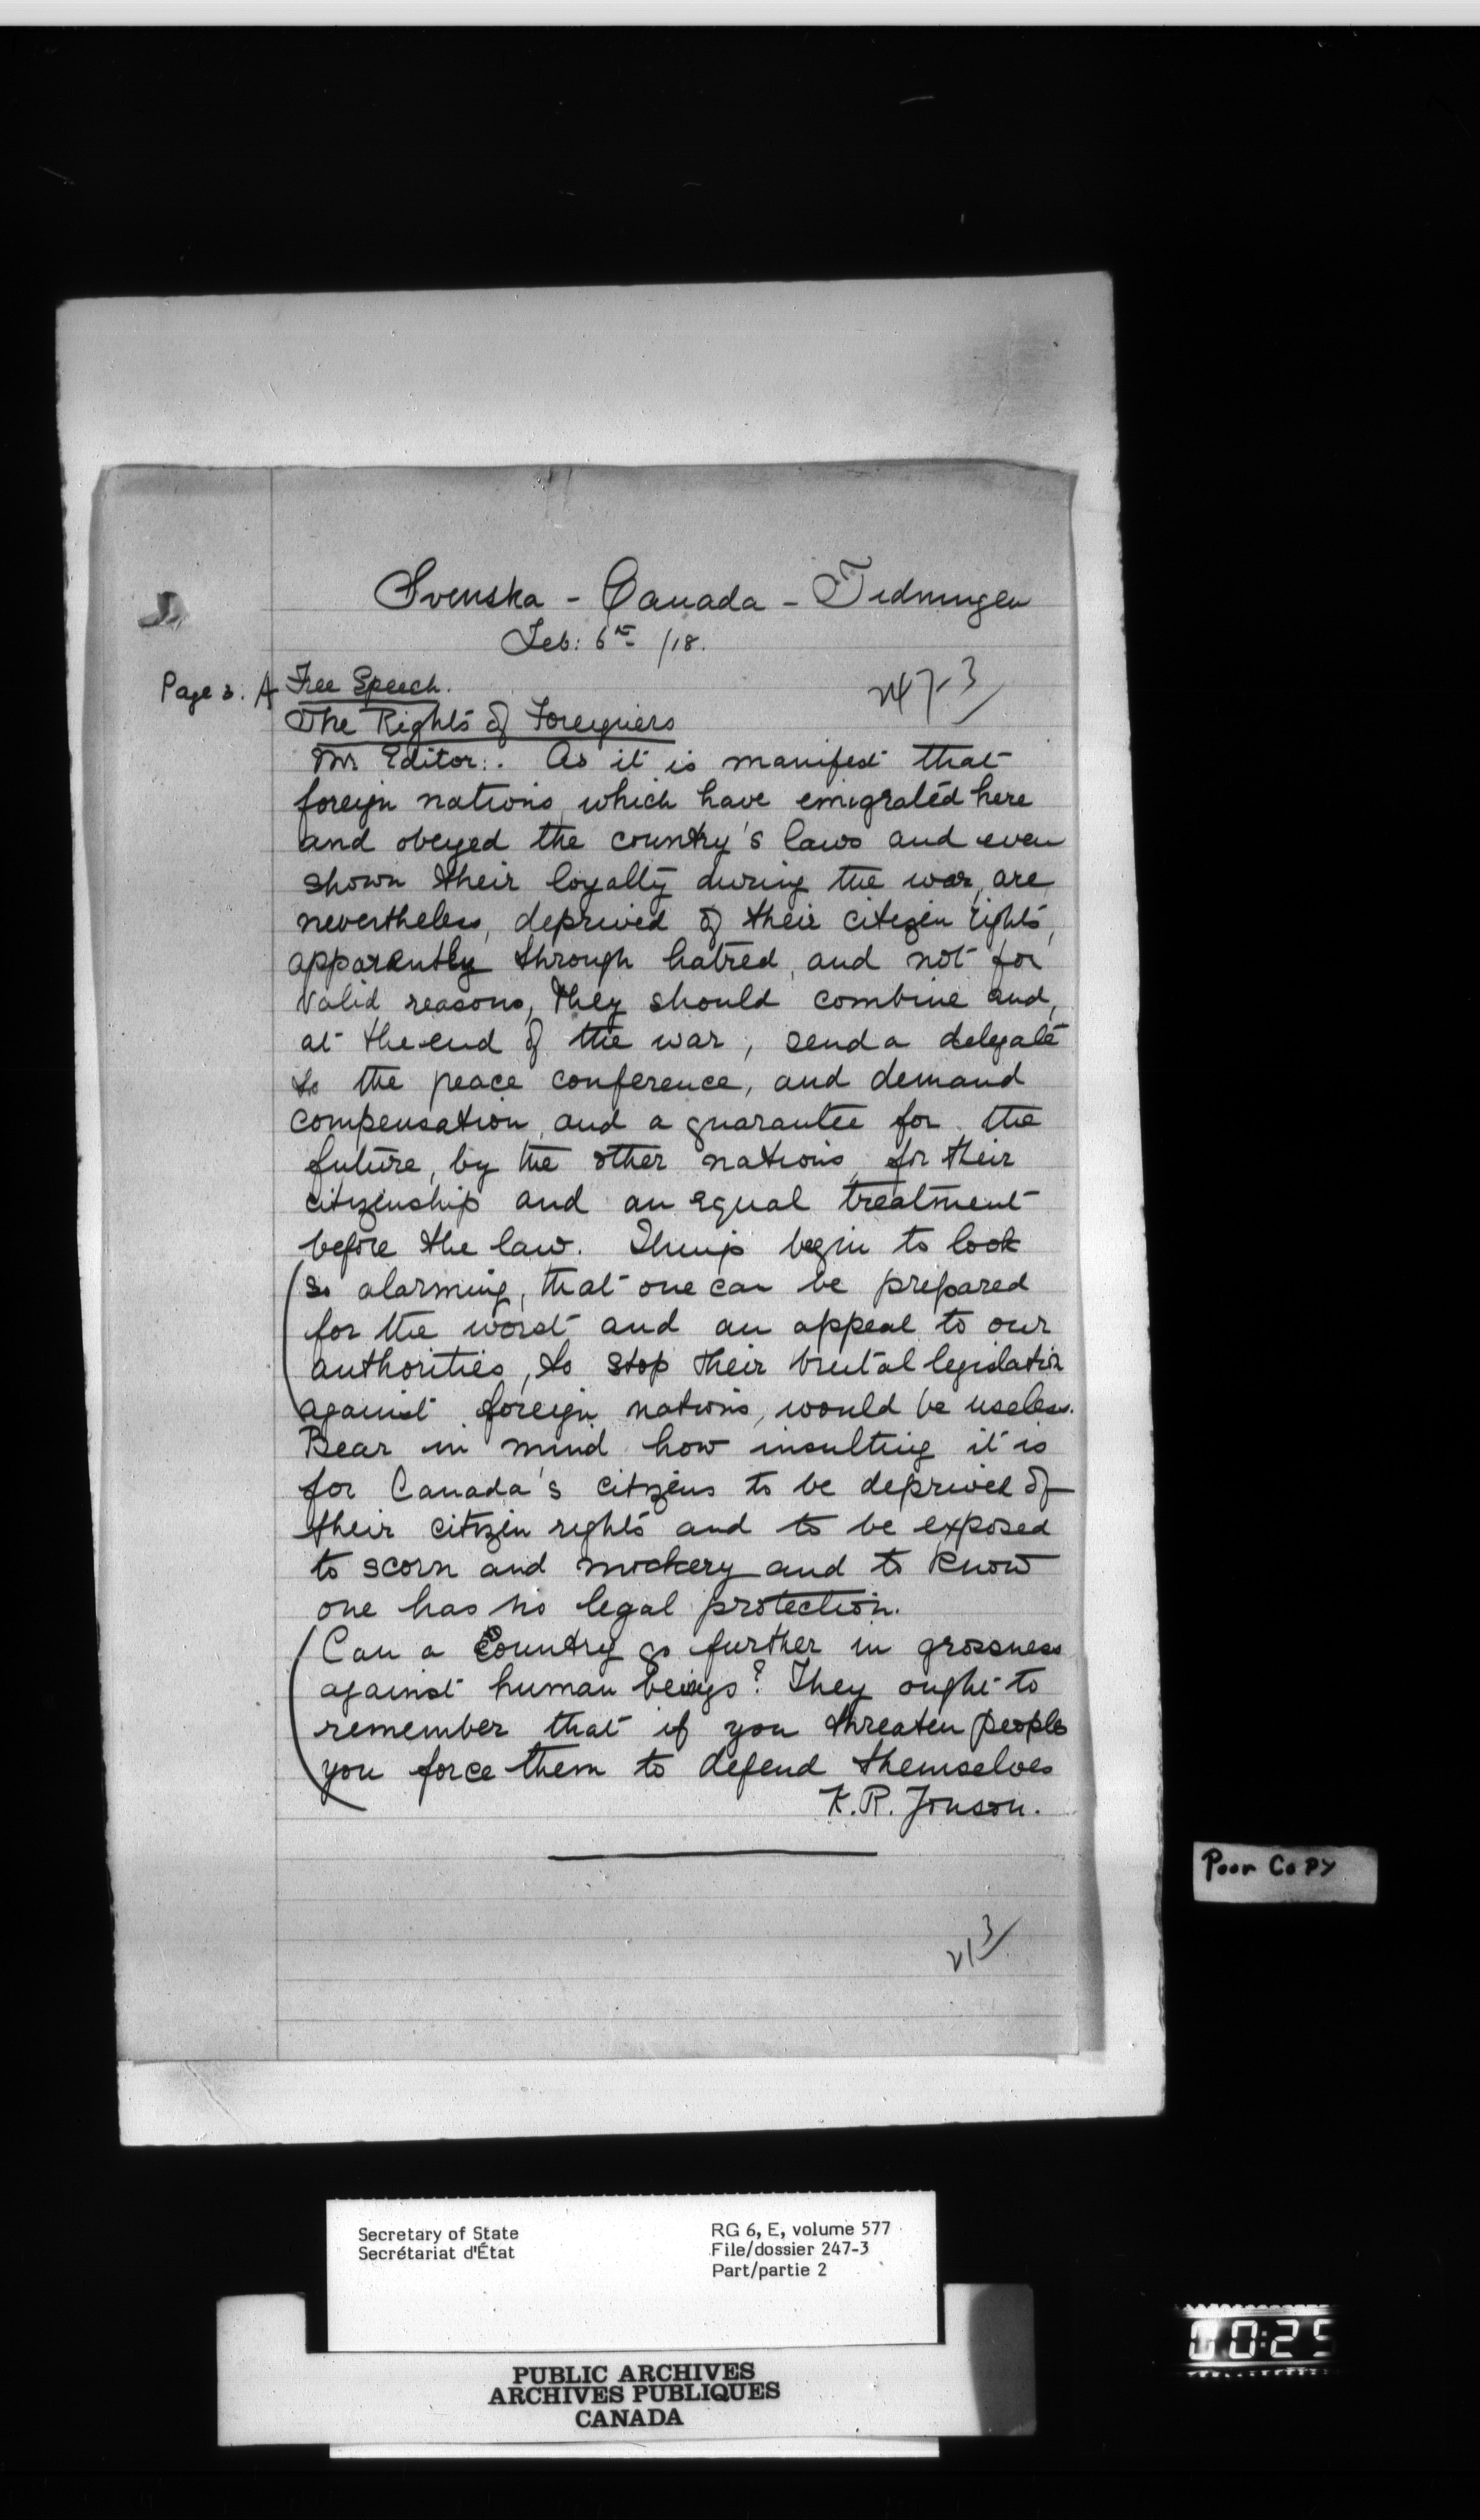 Svenska - Canada - Tidningen
Feb: 6th /18.
247-3
Page 3. A Free Speech.
The Rights of Foreigners
Mr. Editor:. As it is manifest that
foreign nations, which have emigrated here
and obeyed the country's laws and even
shown their loyalty during the war, are
nevertheless, deprived of their citizen rights,
apparently through hatred, and not for
valid reasons, they should combine and,
at the end of the war, send a delegate
to the peace conference, and demand
compensation, and a guarantee for the
future, by the other nations, for their
citizenship and an equal treatment
before the law. Things begin to look
(so alarming, that one can be prepared
for the worst and an appeal to our
authorities, to stop their brutal legislation
against foreign nations, would be useless.
Bear in mind how insulting it is
for Canada's citizens to be deprived of
their citizen rights and to be exposed
to scorn and mockery and to know
one has no legal protection.
(Can a Country go further in grossness
against human beings? They ought to
remember that if you threaten people
you force them to defend themselves
K.R. Jonson.
Poor Copy
21/3
Secretary of State
Secrétariat d'État
RG 6, E, volume 577
File/dossier 247-3
Part/partie 2
PUBLIC ARCHIVES
ARCHIVES PUBLIQUES
CANADA
00:25